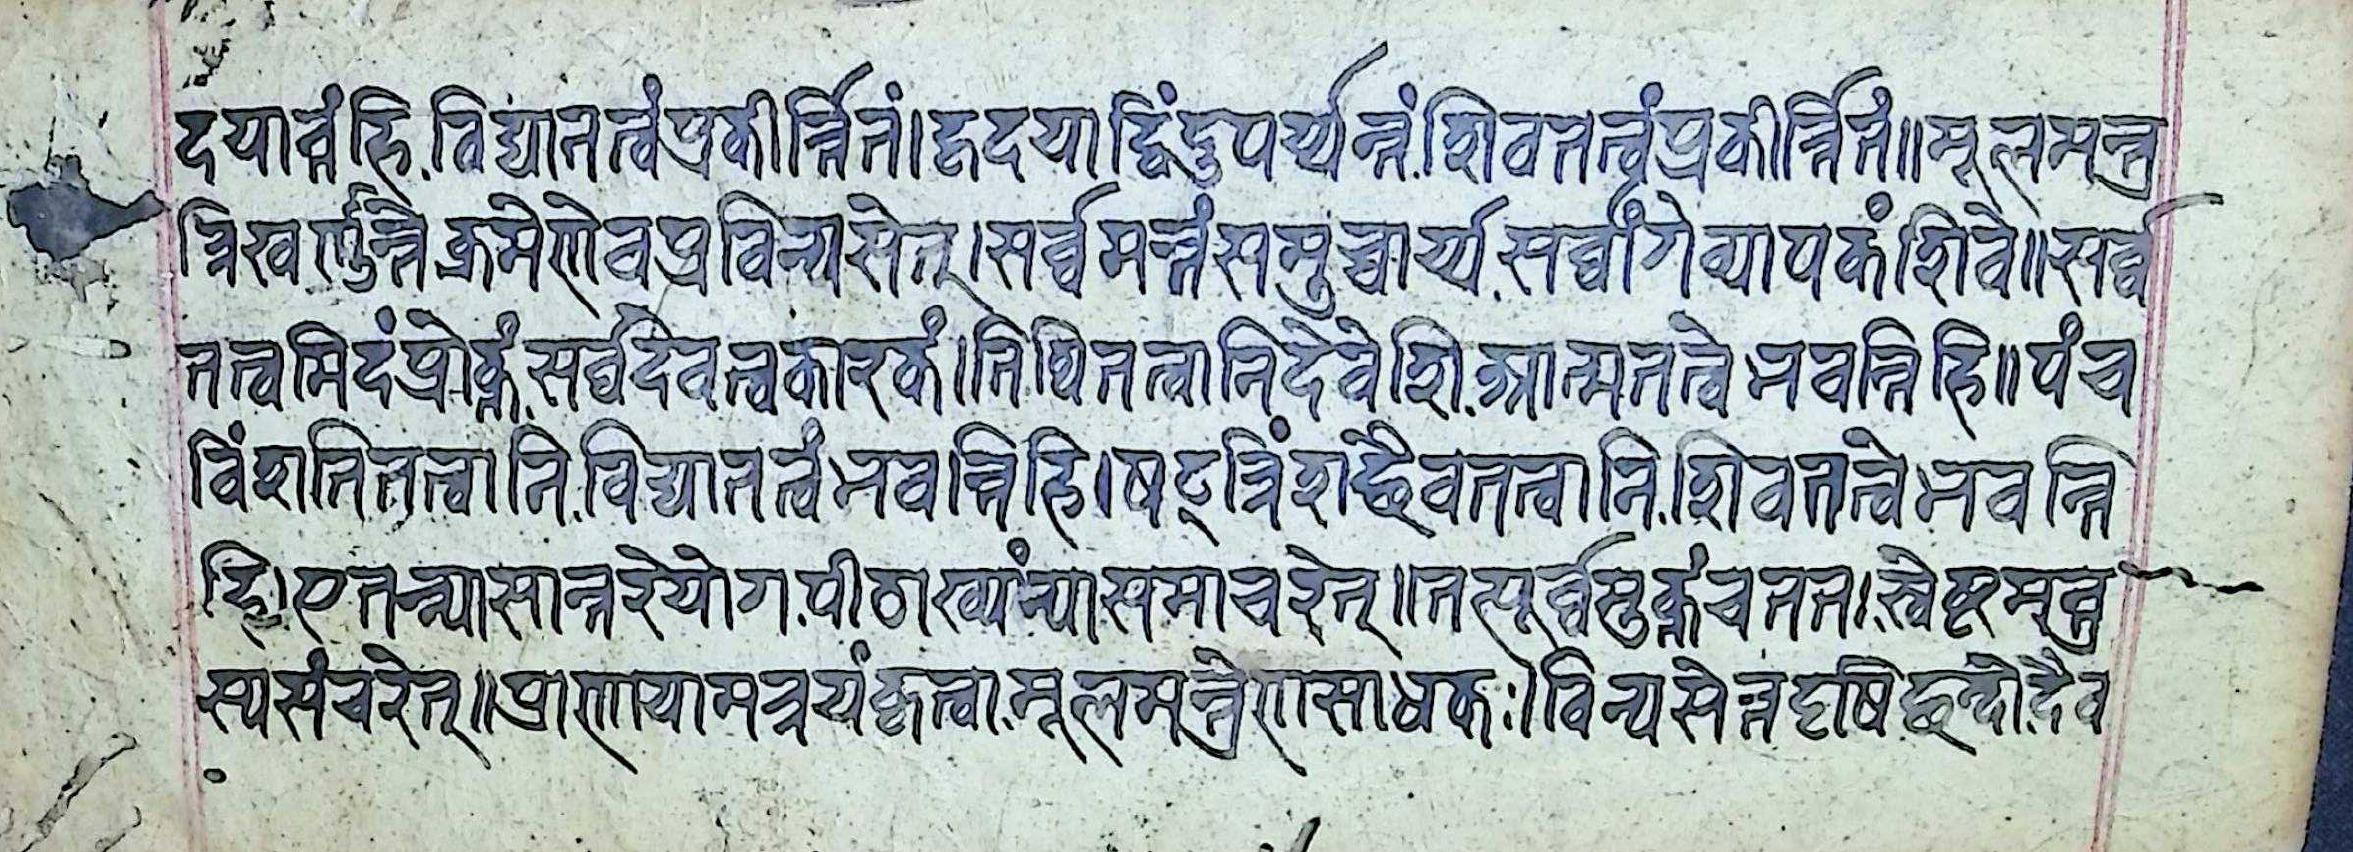 दयान्तं हि.विद्यातत्वं प्रकीर्त्तितं।हृदयाद्विंदुपर्य्यन्तं.शिवतत्वं प्रकीर्त्तितं॥मूलमन्त्र
त्रिखर्ण्डन्ते क्रमेणेव प्रविन्यसेत्।सर्व्वमन्त्रं समुच्चार्य्य.सर्व्वांगे व्यापकं शिवे॥सर्व्व
तत्वमिदं प्रोक्तं.सर्व्वदेवत्वकारकं।तिथितत्वानि देवेशि.आत्मतत्वे भवन्ति हि॥पंच
विंशतितत्वानि.विद्यातत्वं भवन्ति हि।षट्त्रिंशच्छैवतत्वानि.शिवतत्वे भवन्ति
हि।एतन्न्यासान्तरे योग.पीठाख्यं न्यासमाचरेत्॥तत्पूर्व्वमुक्तं च तत.स्वेष्टमन्त्र
स्य संचरेत्॥प्राणायामत्रयं कृत्वा.मूलमन्त्रेण साधकः।विन्यसेत्तदृषिछन्दो.दैव